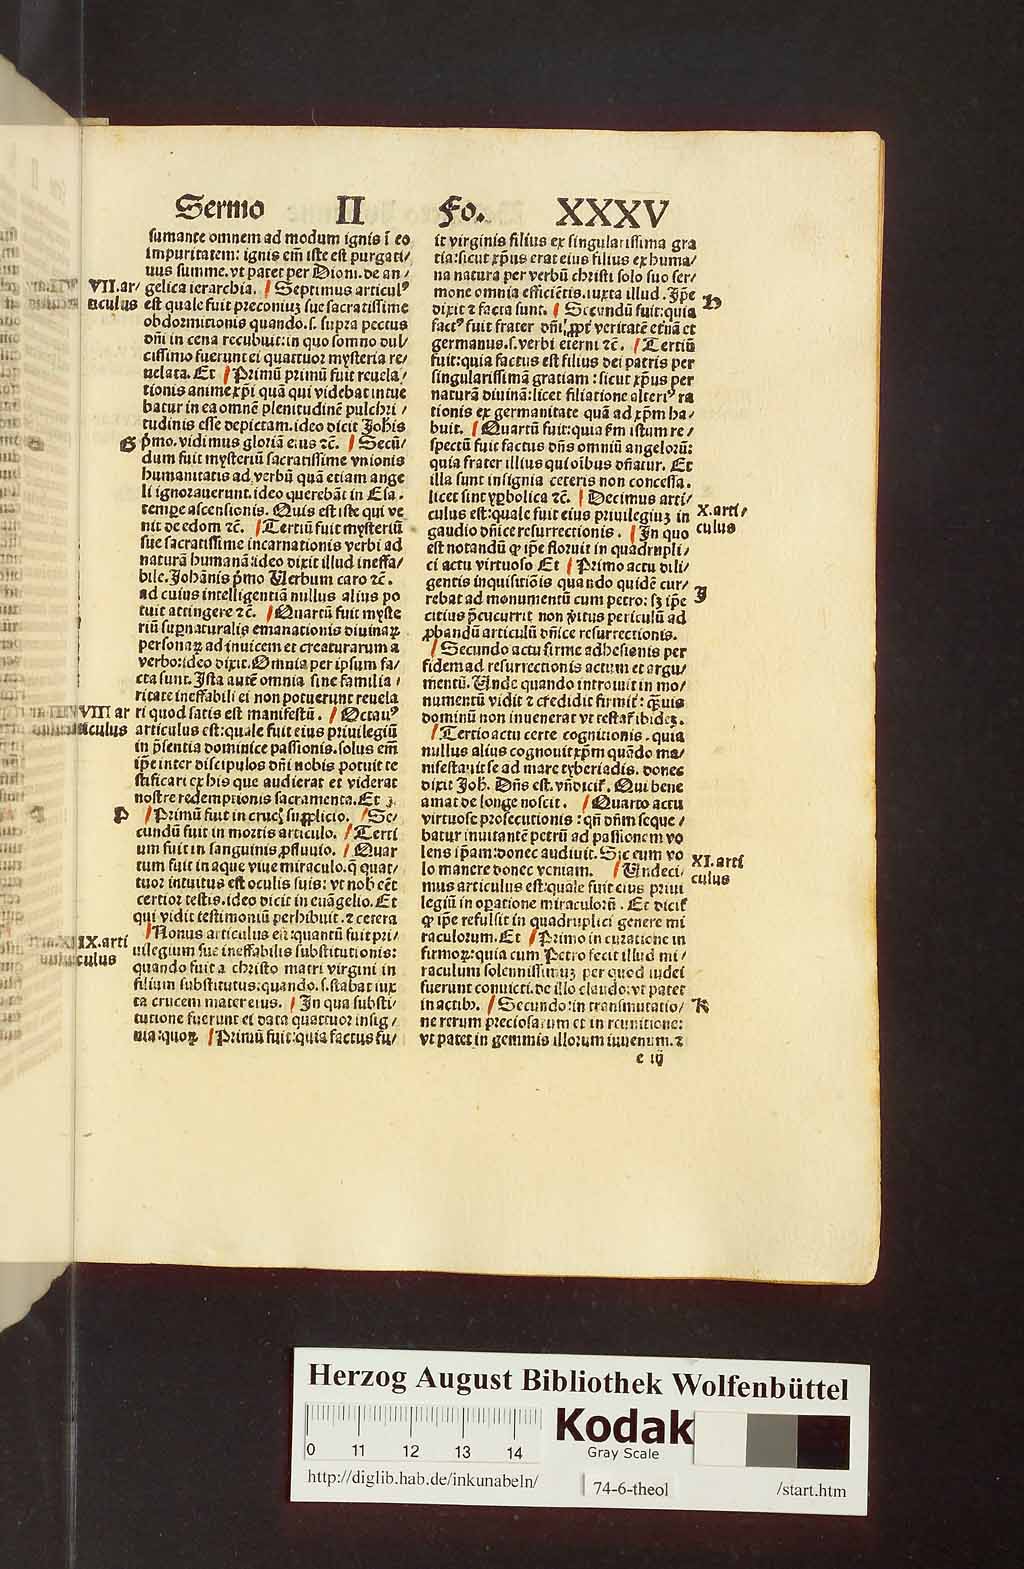 Sermo II Fo. XXXV
sumante omnem ad modum ignis ī eo
impuritatem: ignis em̄ iste est purgati/
uus summe. vt patet per Dioni. de an/
VII.ar/
ticulus
gelica ierarchia. Septimus articulꝰ
est quale fuit preconiuꝫ sue sacratissime
obdormitionis quando.s. supra pectus
dn̄i in cena recubuit: in quo somno dul/
cissimo fuerunt ei quattuor mysteria re/
uelata. Et Primū primū fuit reuela/
tionis anime xp̄i quā qui videbat intue
batur in ea omnē plenitudinē pulchri/
tudinis esse depictam. ideo dicit Joh̄is
G
p̄mo. vidimus gloriā eius ⁊c̄. Secū/
dum fuit mysteriū sacratissime vnionis
humanitatis ad verbū quā etiam ange
li ignorauerunt. ideo querebāt in Esa.
tempore ascensionis. Quis est iste qui ve
nit de edom ⁊c̄. Tertiū fuit mysteriū
sue sacratissime incarnationis verbi ad
naturā humanā: ideo dixit illud ineffa/
bile. Johānis p̄mo Verbum caro ⁊c̄.
ad cuius intelligentiā nullus alius po
tuit attingere ⁊c̄. Quartū fuit myste
riū suꝑnaturalis emanationis diuinaꝝ
personaꝝ ad inuicem et creaturarum a
verbo: ideo dixit. Omnia per ipsum fa/
cta sunt. Ista autē omnia sine familia/
ritate ineffabili ei non potuerunt reuela
VIII ar
ticulus
ri quod satis est manifestū. Octauꝰ
articulus est: quale fuit eius priuilegiū
in p̄sentia dominice passionis. solus em̄
ip̄e inter discipulos dn̄i nobis potuit te
stificari ex his que audierat et viderat
nostre redemptionis sacramenta. Et
Primū fuit in crucꝭ supplicio. Se/
cundū fuit in mortis articulo. Terti
um fuit in sanguinis ꝓfluuio. Quar
tum fuit in aque viue miraculo. q̄ quat/
tuor intuitus est oculis suis: vt nob̄ cēt
certior testis. ideo dicit in euāgelio. Et
qui vidit testimoniū perhibuit. ⁊ cetera
IX.arti
culus
Nonus articulus est: quantū fuit pri/
uilegium sue ineffabilis substitutionis:
quando fuit a christo matri virgini in
filium substitutus: quando.s. stabat iux
ta crucem mater eius. In qua substi/
tutione fuerunt ei data quattuor insig/
nia: quoꝝ Primū fuit: quia factus fu/
it virginis filius ex singularissima gra
tia: sicut xp̄us erat eius filius ex huma/
na natura per verbū christi solo suo ser/
mone omnia efficiētis. iuxta illud. Ip̄e
H
dixit ⁊ facta sunt. Secundū fuit: quia
factꝰ fuit frater dn̄i ꝓpt̄ veritatē et̄nā et
germanus.s. verbi eterni ⁊c̄. Tertiū
fuit: quia factus est filius dei patris per
singularissimā gratiam: sicut xp̄us per
naturā diuinā: licet filiatione alteriꝰ ra
tionis ex germanitate quā ad xp̄m ha/
buit. Quartū fuit: quia fm̄ istum re/
spectū fuit factus dn̄s omniū angelorū:
quia frater illius qui oībus dn̄atur. Et
illa sunt insignia ceteris non concessa.
licet sint yꝑbolica ⁊c̄. Decimus arti/
X.arti/
culus
culus est: quale fuit eius priuilegiuꝫ in
gaudio dn̄ice resurrectionis. In quo
est notandū ꝙ ip̄e floruit in quadrupli/
ci actu virtuoso Et Primo actu dili/
gentis inquisitiōis quando quidē cur/
J
rebat ad monumentū cum petro: sꝫ ip̄e
citius p̄cucurrit non v̄itus periculū ad
ꝓbandū articulū dn̄ice resurrectionis.
Secundo actu firme adhesionis per
fidem ad resurrectionis actum et argu/
mentū. Unde quando introiuit in mo/
numentū vidit ⁊ credidit firmit̄: qͣuis
dominū non inuenerat vt testat̄ ibideꝫ.
Tertio actu certe cognitionis. quia
nullus alius cognouit xp̄m quādo ma/
nifestauit se ad mare tyberiadis. donec
dixit Joh. Dn̄s est. vn̄ dicit̄. Qui bene
amat de longe noscit. Quarto actu
virtuose prosecutionis: qn̄ dn̄m seque/
batur inuitantē petrū ad passionem vo
lens ip̄am: donec audiuit. Sic eum vo
XI.arti
culus
lo manere donec veniam. Undeci/
mus articulus est: quale fuit eius priui
legiū in oꝑatione miraculorū. Et dicit̄
ꝙ ip̄e refulsit in quadruplici genere mi
raculorum. Et Primo in curatione in
firmoꝝ: quia cum Petro fecit illud mi/
raculum solennissimuꝫ per quod iudei
fuerunt conuicti. de illo claudo: vt patet
K
in actibꝰ. Secundo: in transmutatio/
ne rerum preciosarum et in reunitione:
vt patet in gemmis illorum iuuenum. ⁊
e iij
Herzog August Bibliothek Wolfenbüttel
0 11 12 13 14
Kodak
Gray Scale
http://diglib.hab.de/inkunabeln/
74-6-theol
/start.htm